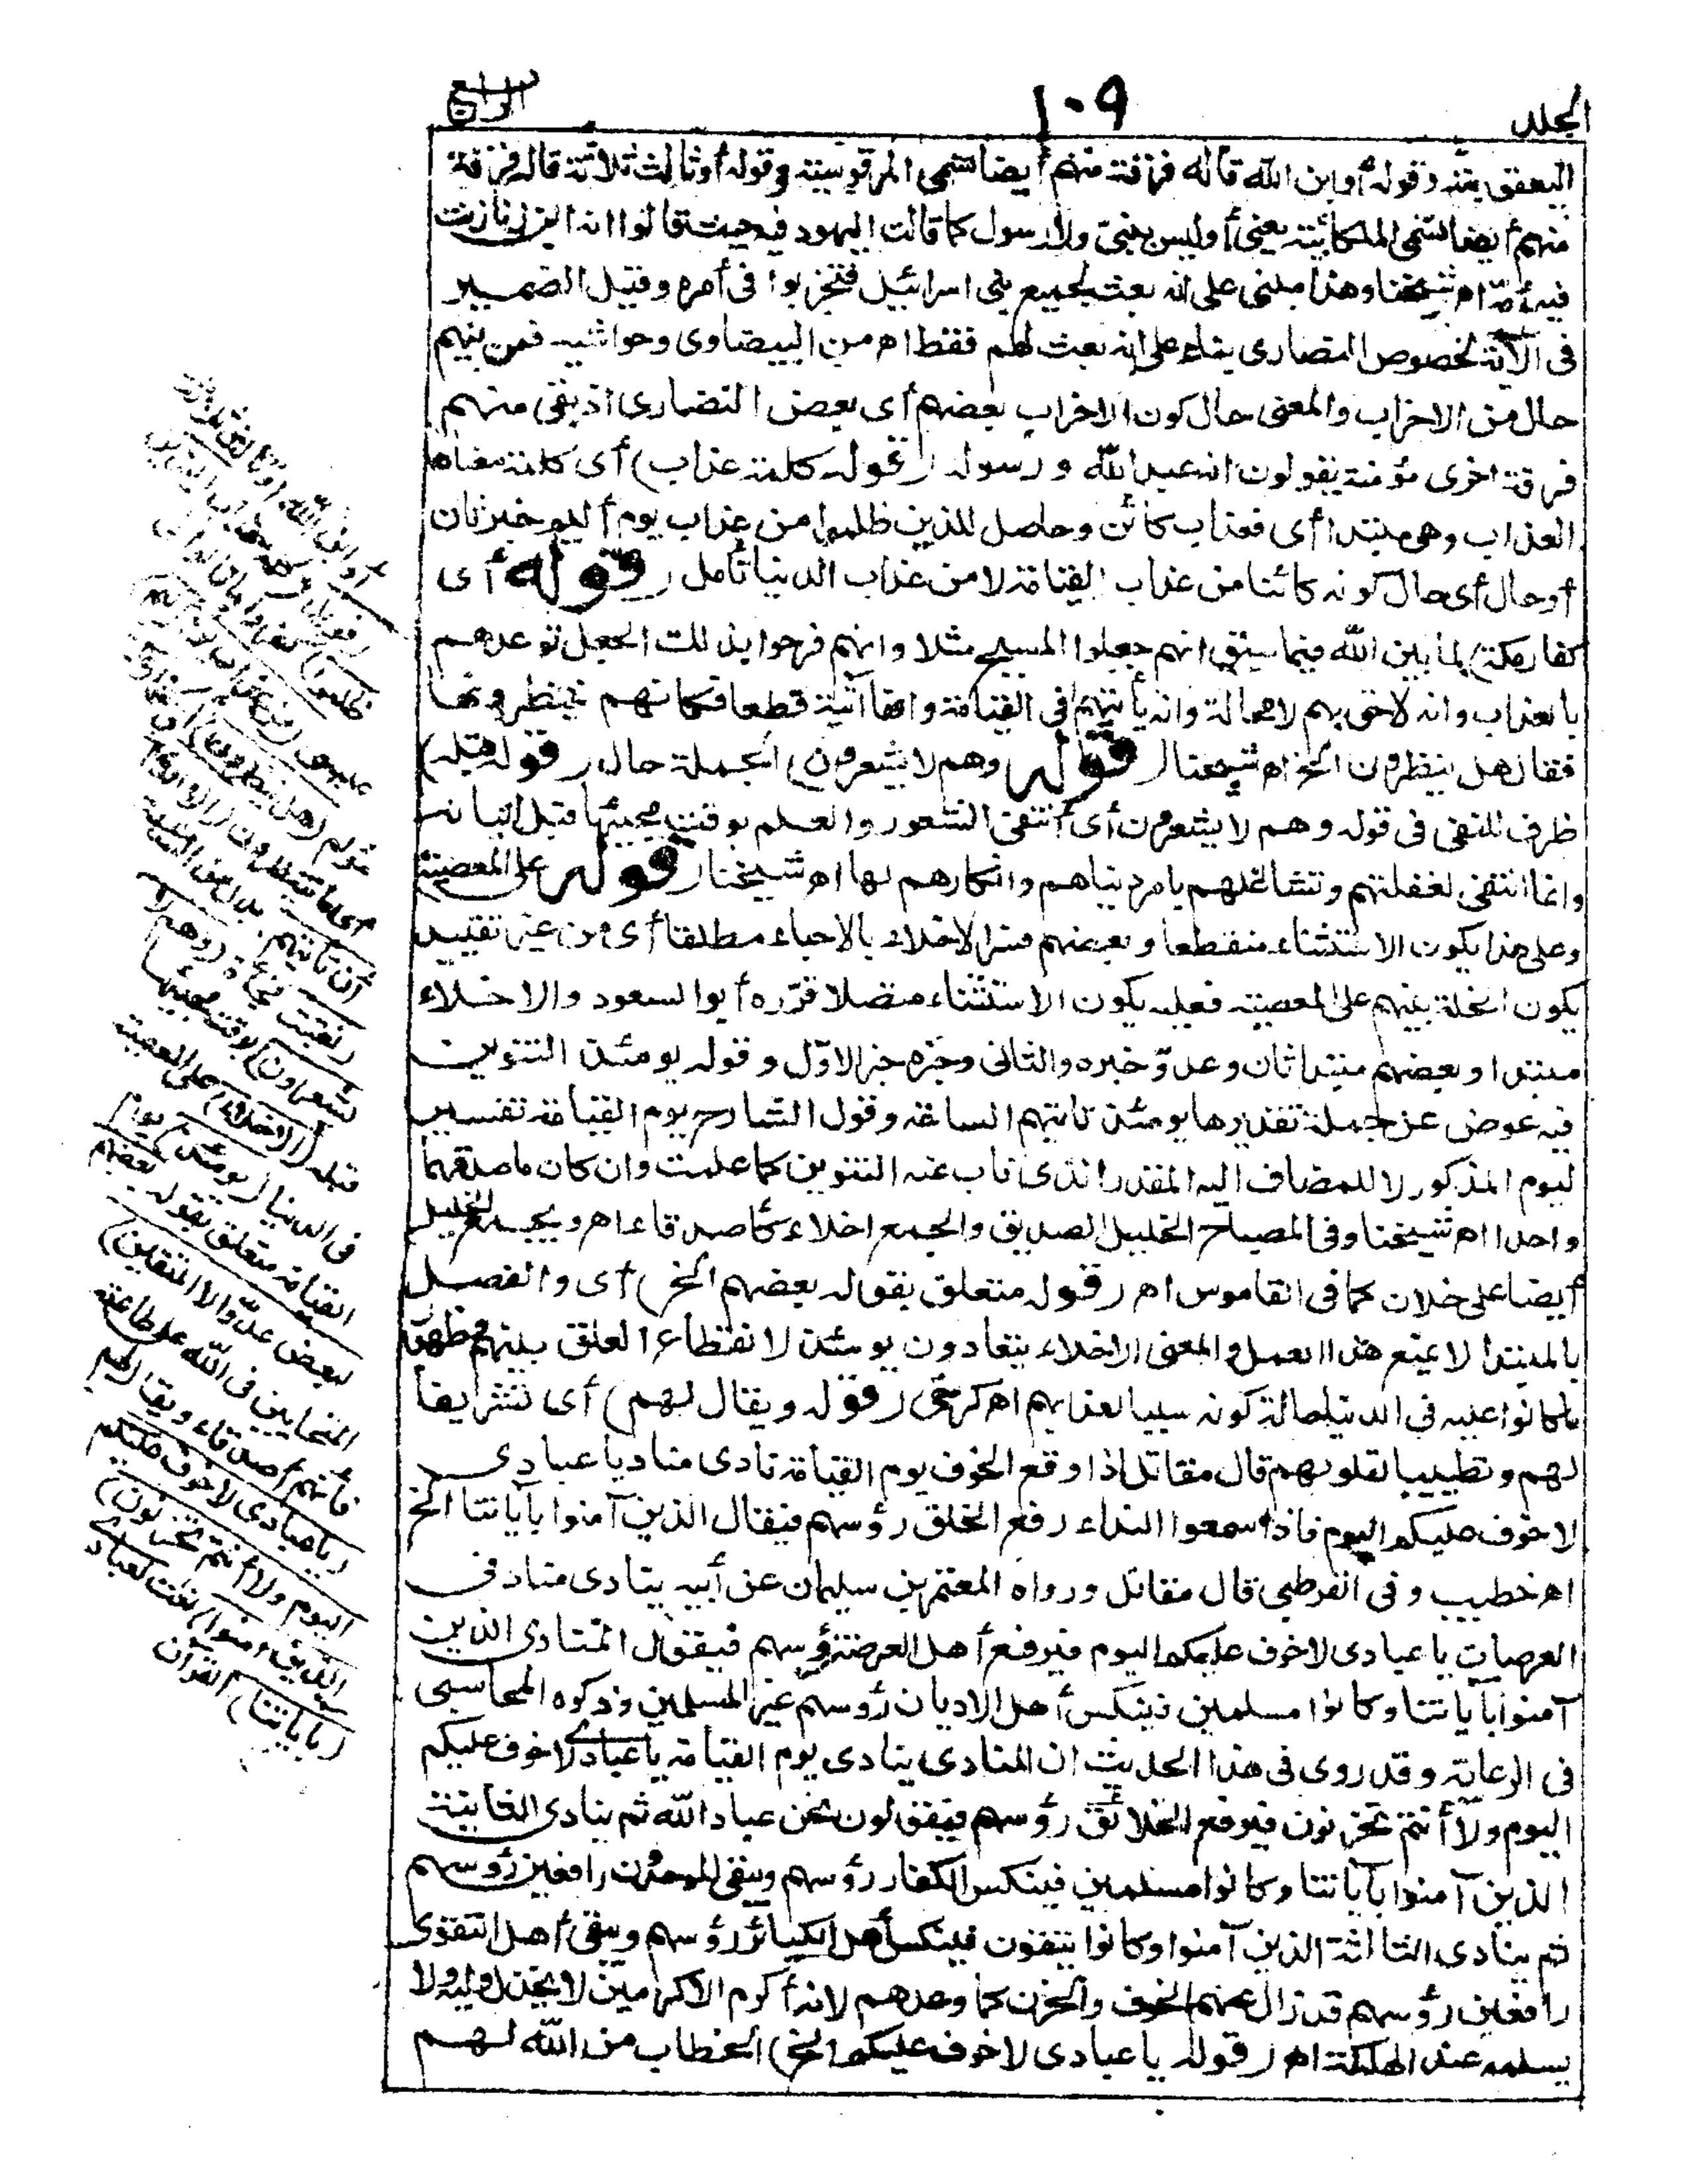 المجلد
١٠٩
الرابع
اليعقوبية وقوله أو ابن الله قاله فرقة منهم أيضا تسمى المرقوسية وقوله أو ثالث ثلاثة قاله فرقة
منهم أيضا تسمى الملكائية يعني أو ليس بنبي ولا رسول كما قالت اليهود فيه حيث قالوا انه ابن زنا زنت
فيه أمه اه شيخنا وهذا مبني على انه بعث لجميع بني اسرائيل فتحزبوا في أمره وقيل الضمير
في الآية لخصوص النصارى بناء على انه بعث لهم فقط اه من البيضاوى وحواشيه فمن بينهم
حال من الاحزاب والمعنى حال كون الاحزاب بعضهم أى بعض النصارى اذ بقى منهم
فرقة اخرى مؤمنة يقولون انه عبد الله ورسوله (قوله كلمة عذاب) أى كلمة معناها
العذاب وهى مبتدا أى فعذاب كائن وحاصل للذين ظلموا من عذاب يوم أليم خبر ثان
أو حال أى حال كونه كائنا من عذاب القيامة لا من عذاب الدنيا تأمل (قوله أى
كفار مكة) لما بين الله فيما سبق انهم جعلوا المسيح مثلا وانهم فرحوا بذلك الجعل توعدهم
بالعذاب وانه لاحق بهم لا محالة وانه يأتيهم في القيامة وانها آتية قطعا فكانهم ينظرونها
فقال هل ينظرون الخ اه شيخنا (قوله وهم لا يشعرون) الجملة حال (قوله قبله)
ظرف للنفى في قوله وهم لا يشعرون أى انتفى الشعور والعلم بوقت مجيئها قبل اتيانه
وانما انتفى لغفلتهم وتشاغلهم بامر دنياهم وانكارهم لها اه شيخنا (قوله على المعصية)
وعلى هذا يكون الاستثناء منقطعا وبعضهم فسر الاخلاء بالاحباء مطلقا أى من غير تقييد
بكون الخلة بينهم على المعصية فعليه يكون الاستثناء متصلا قرره أبو السعود والاخلاء
مبتدا وبعضهم مبتدا ثان وعدو خبره والثانى وخبره خبر الاول وقوله يومئذ التنوين
فيه عوض عن جملة تقديرها يومئذ تاتيهم الساعة وقول الشارح يوم القيامة تفسير
ليوم المذكور لا للمضاف اليه المقدر الذى ناب عنه التنوين كما علمت وان كان ماصدقهما
واحدا اه شيخنا وفى المصباح الخليل الصديق والجمع اخلاء كأصدقاء اه ويجمع الخليل
أيضا على خلان كما فى القاموس اه (قوله متعلق بقوله بعضهم الخ) أى والفصل
بالمبتدا لا يمنع هذا العمل والمعنى الاخلاء يتعادون يومئذ لانقطاع العلق بينهم وظهور
ما كانوا عليه فى الدنيا حالة كونه سببا لعذابهم اه كرخى (قوله ويقال لهم) أى تشريفا
لهم وتطييبا لقلوبهم قال مقاتل اذا وقع الخوف يوم القيامة نادى مناد يا عبادى
لا خوف عليكم اليوم فاذا سمعوا النداء رفع الخلق رؤسهم فيقال الذين آمنوا بآياتنا الخ
اه خطيب وفى القرطبى قال مقاتل ورواه المعتمر بن سليمان عن أبيه ينادى مناد فى
العرصات يا عبادى لا خوف عليكم اليوم فيرفع أهل العرصة رؤسهم فيقول المنادى الذين
آمنوا بآياتنا وكانوا مسلمين فينكس أهل الاديان رؤسهم غير المسلمين وذكره المحاسبى
فى الرعاية وقد روى فى هذا الحديث ان المنادى ينادى يوم القيامة يا عبادى لا خوف عليكم
اليوم ولا أنتم تحزنون فيرفع الخلائق رؤسهم فيقولون نحن عباد الله ثم ينادى الثانية
الذين آمنوا بآياتنا وكانوا مسلمين فينكس الكفار رؤسهم ويبقى الموحدون رافعين رؤسهم
ثم ينادى الثالثة الذين آمنوا وكانوا يتقون فينكس أهل الكبائر رؤسهم ويبقى أهل التقوى
رافعين رؤسهم قد زال عنهم الخوف والحزن كما وعدهم لانه أكرم الاكرمين لا يخذل وليه ولا
يسلمه عند الهلكة اه (قوله يا عبادى لا خوف عليكم الخ) الخطاب من الله لهم
أو ابن الله أو ثالث ثلاثة
ظلموا)
(من عذاب يوم أليم)
قولهم (هل ينظرون)
أى ما ينتظرون (الا الساعة
أن تأتيهم) بدل من الساعة
(بغتة) فجأة (وهم لا
يشعرون) بوقت مجيئها
قبله (الاخلاء) على المعصية
فى الدنيا (يومئذ) يوم
القيامة متعلق بقوله (بعضهم
لبعض عدو الا المتقين)
المتحابين فى الله على طاعته
فأنهم أصدقاء ويقال لهم
(يا عبادى لا خوف عليكم
اليوم ولا أنتم تحزنون)
(الذين آمنوا) نعت لعبادى
(بآياتنا) القرآن